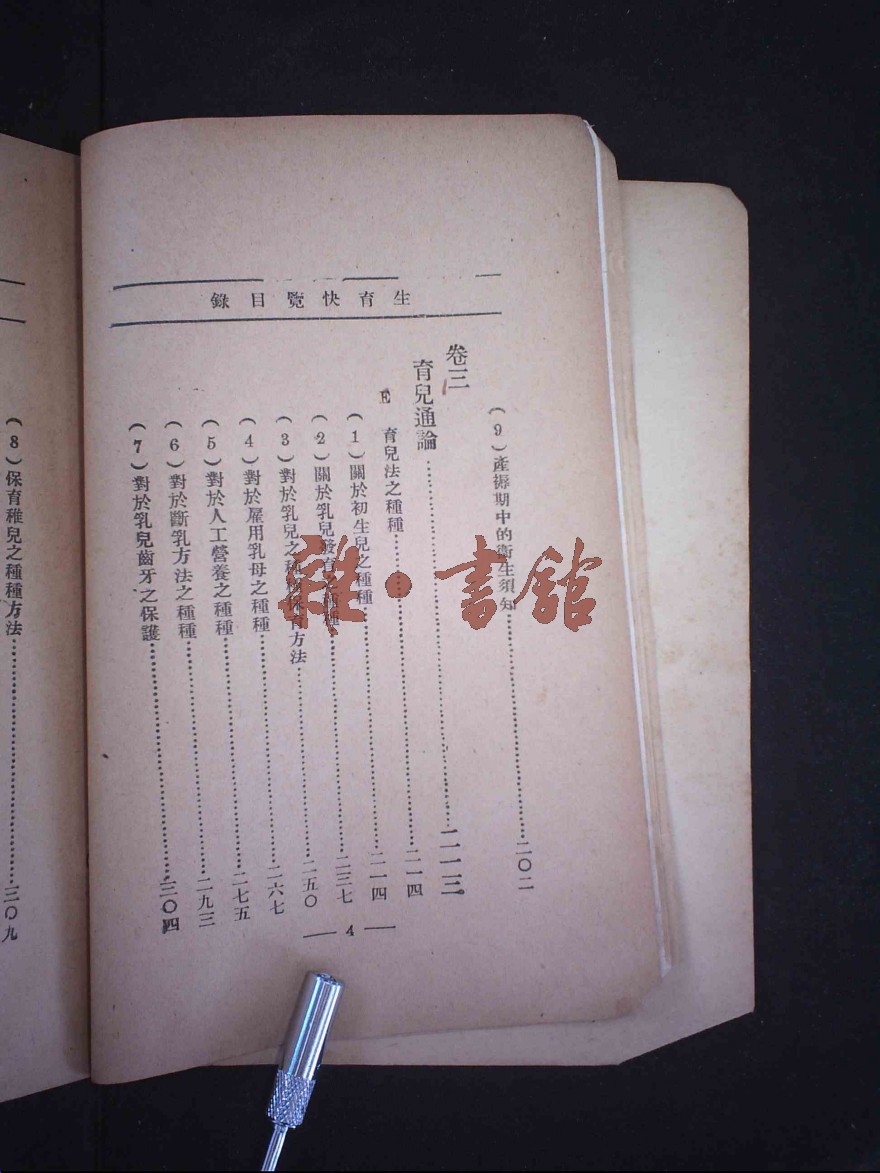 生育快覽目錄
(9)產褥期中的衛生須知……二〇二
卷三
育兒通論……二一三
E 育兒法之種種……二一四
(1)關於初生兒之種種……二一四
(2)關於乳兒發育之種種……二三七
(3)對於乳兒之種種保育方法……二五〇
(4)對於雇用乳母之種種……二六七
(5)對於人工營養之種種……二七五
(6)對於斷乳方法之種種……二九三
(7)對於乳兒齒牙之保護……三〇四
— 4 —
(8)保育稚兒之種種方法……三〇九
雜·書館